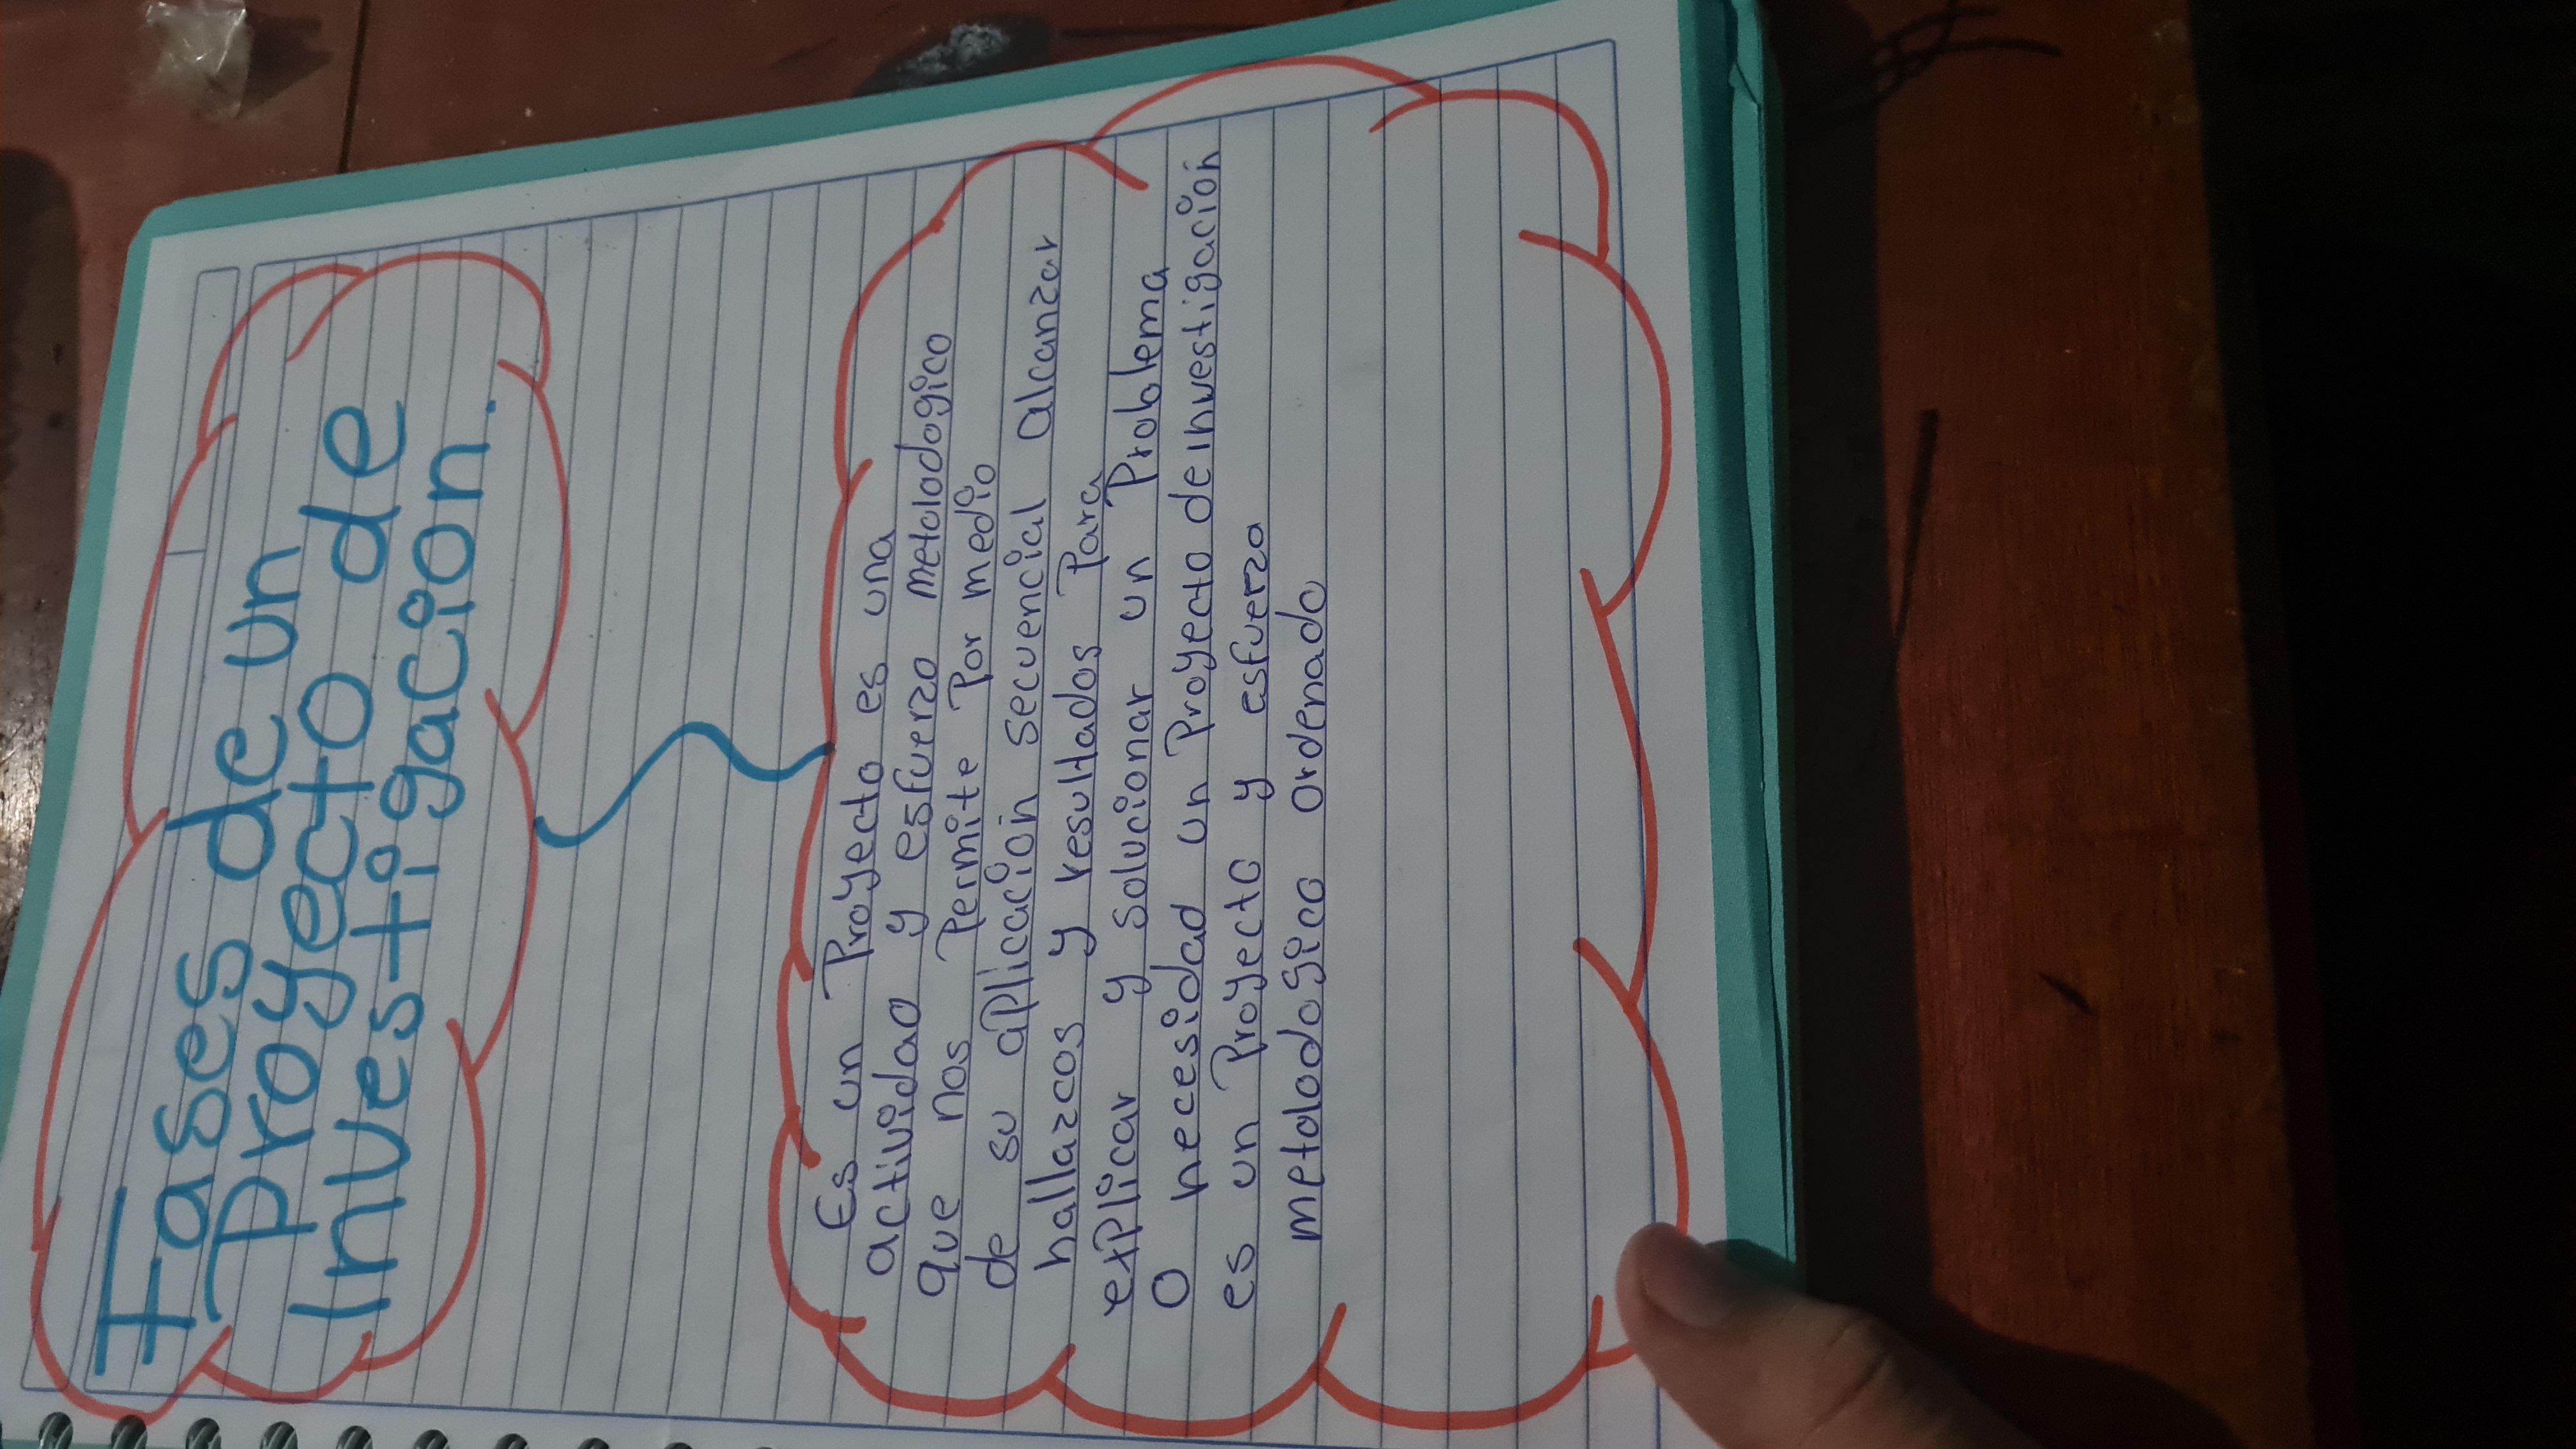 Fases de un
Proyecto de
Investigacion.
Es un Proyecto es una
actividad y esfuerzo metolodogico
que nos Permite Por medio
de su aplicación secuencial alcanzar
hallazcos y resultados Para
explicar y solucionar un Problema
o necesidad un Proyecto de investigación
es un Proyecto y esfuerzo
metolodogico ordenado